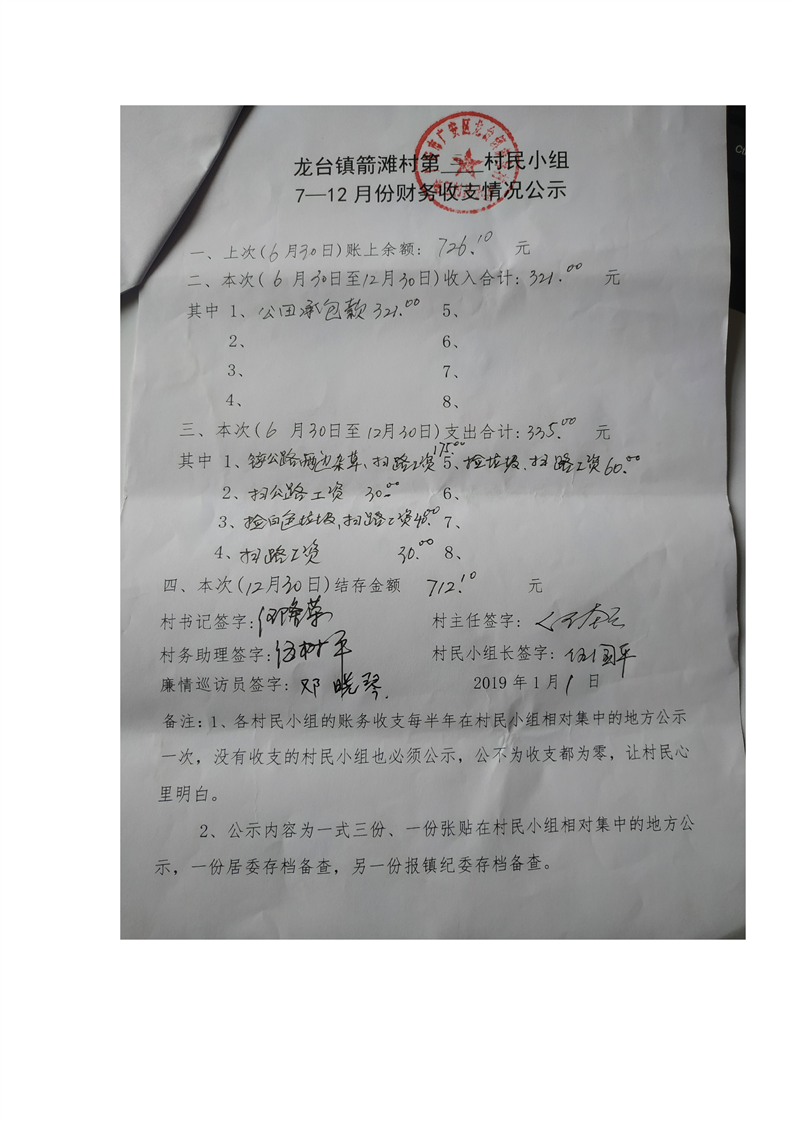 龙台镇箭滩村第 村民小组
7—12月份财务收支情况公示
一、上次(6月30日)账上余额: 726.10 元
二、本次(6月30日至12月30日)收入合计: 321.00 元
其中 1、公田承包款321.00 5、
2、 6、
3、 7、
4、 8、
三、本次(6月30日至12月30日)支出合计: 335.00 元
其中 1、公路两边杂草、扫路工资175.00 5、捡垃圾、扫路工资60.00
2、扫公路工资 30.00 6、
3、捡白色垃圾,扫路工资40.00 7、
4、扫路工资 30.00 8、
四、本次(12月30日)结存金额 712.10 元
村书记签字: 村主任签字:
村务助理签字:伍树平 村民小组长签字:伍国平
廉情巡访员签字:邓晓琴 2019年1月1日
备注:1、各村民小组的账务收支每半年在村民小组相对集中的地方公示
一次,没有收支的村民小组也必须公示,公不为收支都为零,让村民心
里明白。
2、公示内容为一式三份、一份张贴在村民小组相对集中的地方公
示,一份居委存档备查,另一份报镇纪委存档备查。